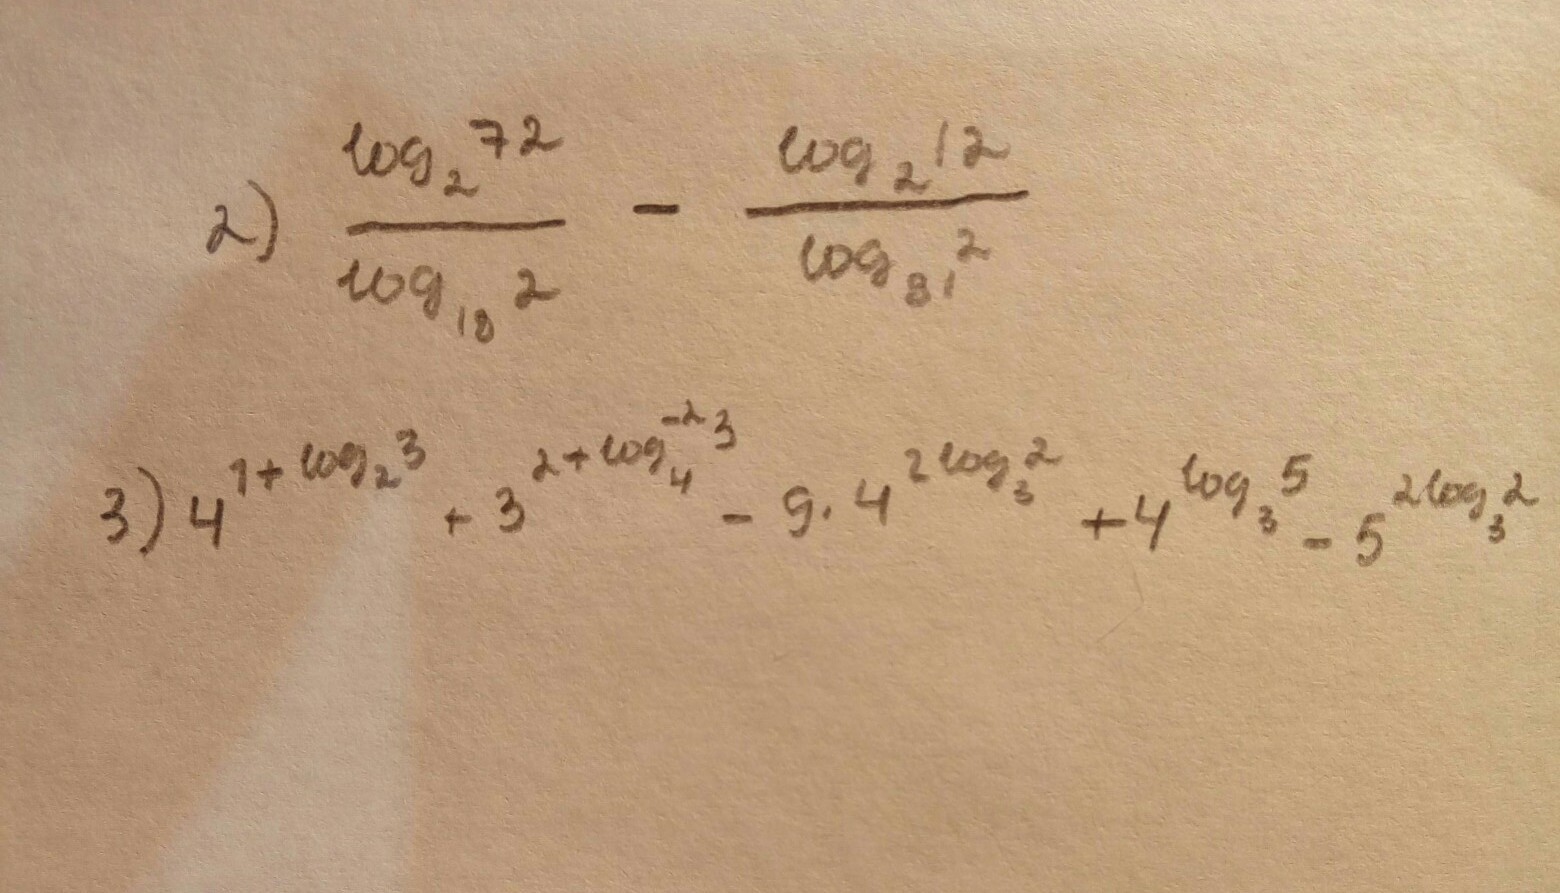 2) log₂72 / log₁₈2 - log₂12 / log₈₁2
3) 4^(1+log₂3) + 3^(2+log₄⁻²3) - 9·4^(2log₃2) + 4^(log₃5) - 5^(2log₃2)